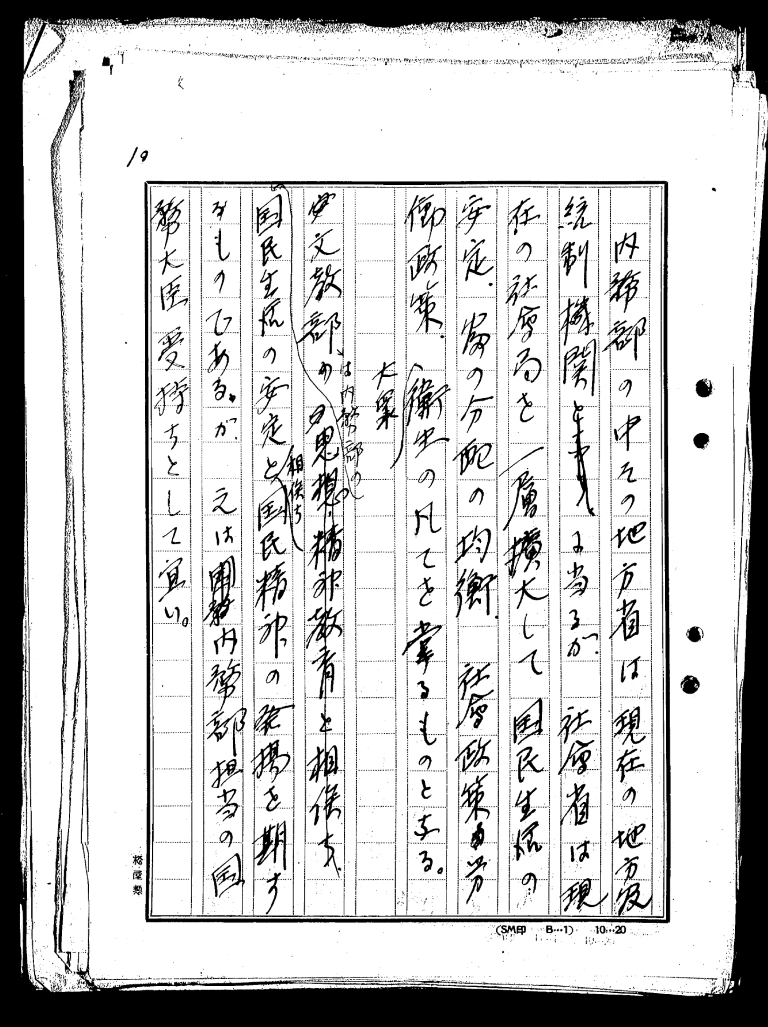 10
内務部の中その地方省は現在の地方及
統制機関に当るが、社会省は現
在の社会局を一層擴大して国民生活の
安定、富の分配の均衡、社会政策、労
働政策、大衆衛生の凡てを掌るものとなる。
文教部の思想、精神教育と相俟ち、
は内務部の
国民生活の安定と国民精神の発揚を期す
相俟ち
るものである。が、之は内務部担当の国
務大臣受持ちとして宜い。
(SM印 B…1) 10…20